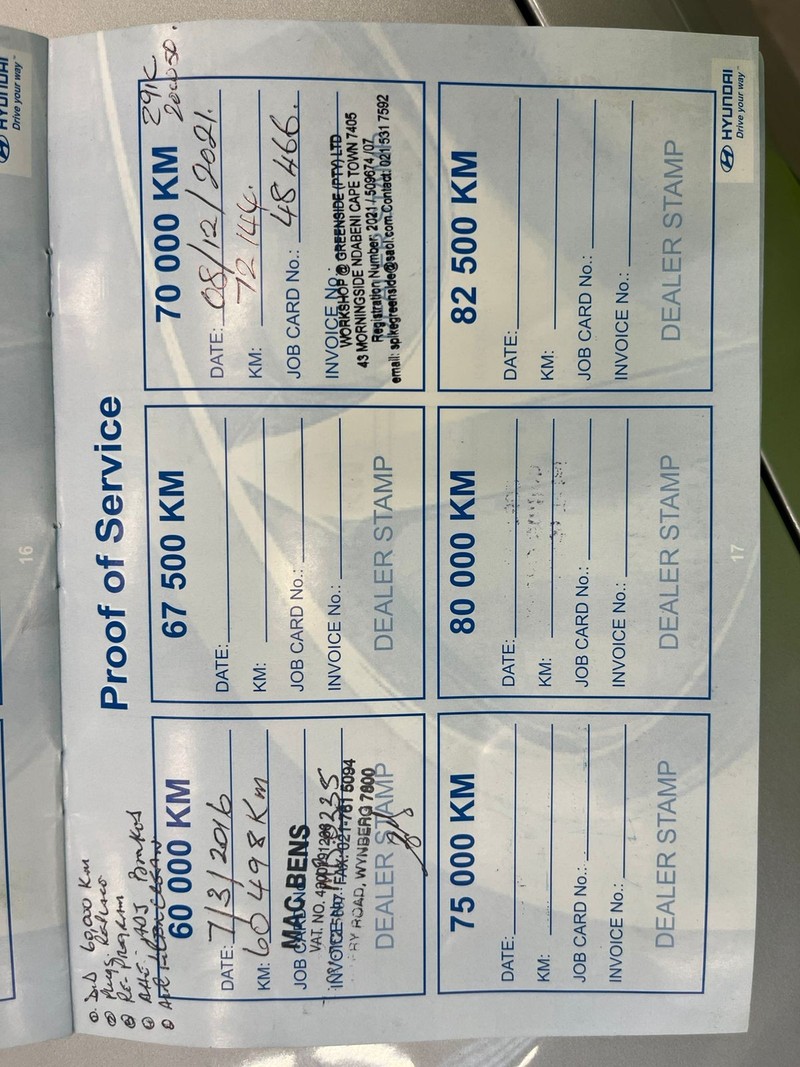 HYUNDAI
Drive your way
16
① D.D 60,000 Km
② Plugs
③ Re-Program
ADJ
Proof of Service
60 000 KM
DATE: 7/3/2016
KM: 60498 Km
JOB CARD No.:
MAC BENS
VAT. NO.
INVOICE No.:
FAX: 021-761 5094
RY ROAD, WYNBERG 7800
DEALER STAMP
67 500 KM
DATE:
KM:
JOB CARD No.:
INVOICE No.:
DEALER STAMP
70 000 KM
DATE: 08/12/2021.
KM: 72144.
JOB CARD No.: 48466.
INVOICE No.:
WORKSHOP @ GREENSIDE (PTY) LTD
43 MORNINGSIDE NDABENI CAPE TOWN 7405
Registration Number: 2021 / 509674 /07
email: spikegreenside@saol.com Contact: 021 531 7592
75 000 KM
DATE:
KM:
JOB CARD No.:
INVOICE No.:
DEALER STAMP
80 000 KM
DATE:
KM:
JOB CARD No.:
INVOICE No.:
DEALER STAMP
82 500 KM
DATE:
KM:
JOB CARD No.:
INVOICE No.:
DEALER STAMP
17
HYUNDAI
Drive your way